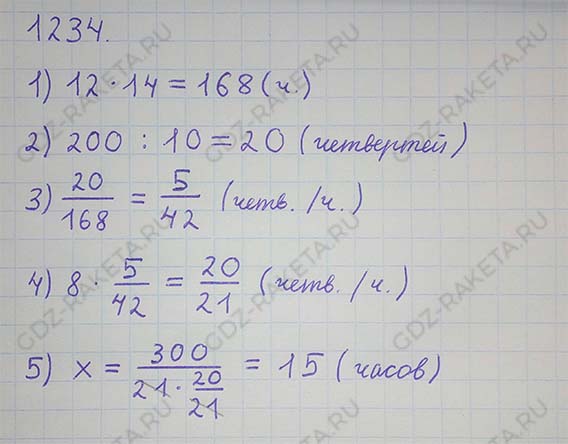 1234.
1) 12 · 14 = 168 (ч.)
2) 200 : 10 = 20 (четвертей)
3) 20/168 = 5/42 (четв. /ч.)
4) 8 · 5/42 = 20/21 (четв. /ч.)
5) x = 300/(21 · 20/21) = 15 (часов)
GDZ-RAKETA.RU